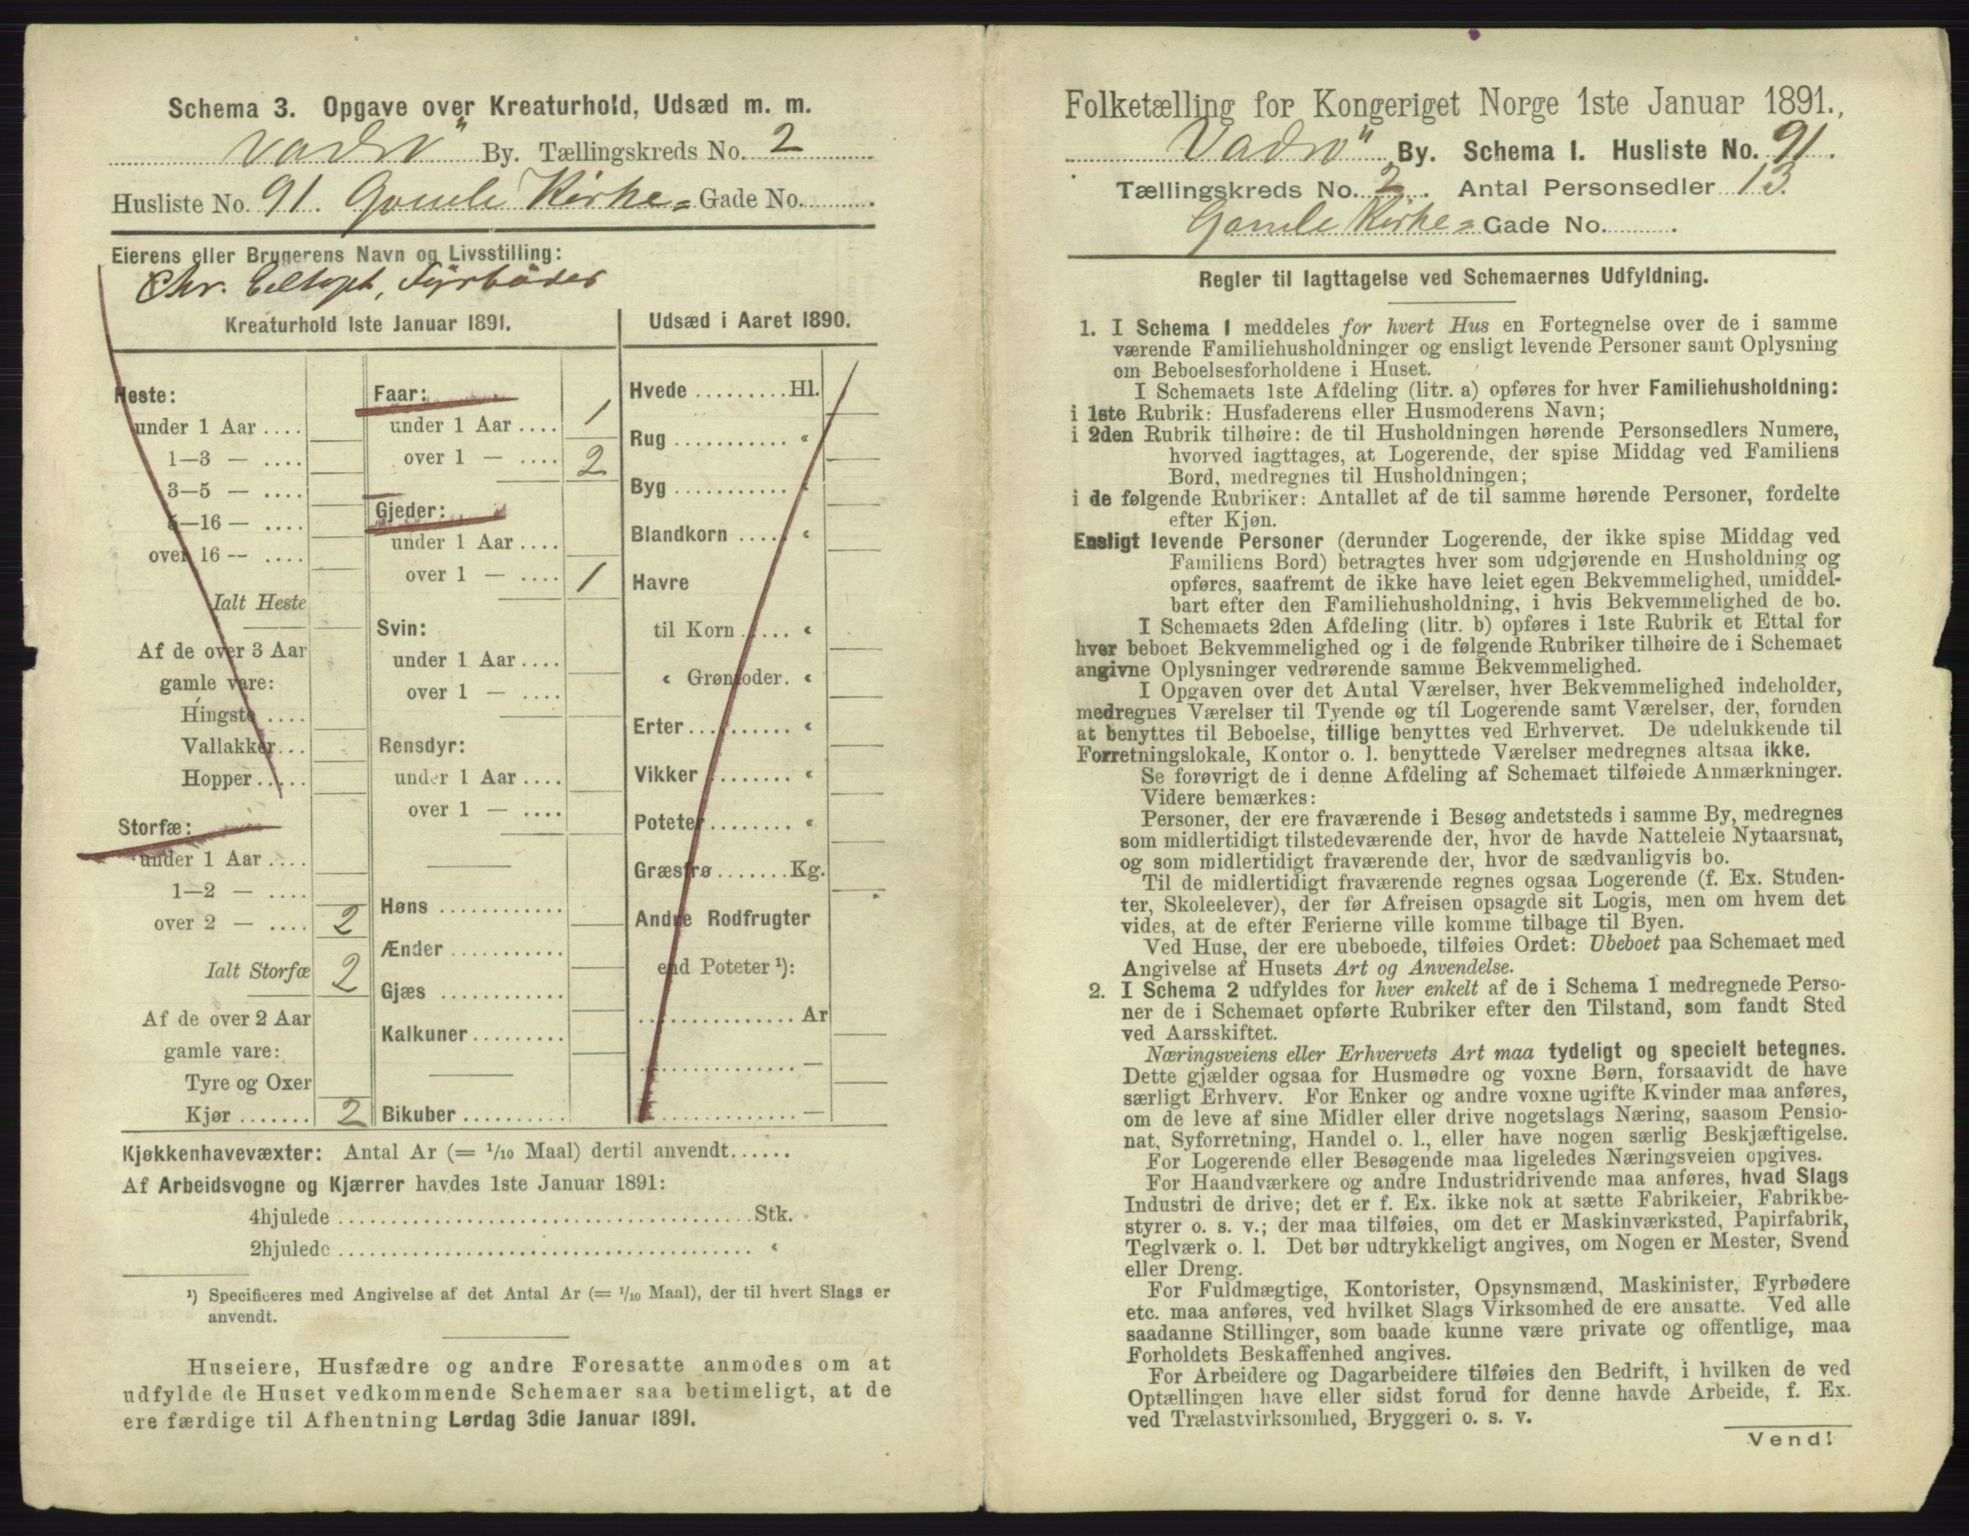 Schema 3. Opgave over Kreaturhold, Udsæd m. m.
Vadsö By. Tællingskreds No. 2
Husliste No. 91. Gamle Kirke= Gade No.
Eierens eller Brugerens Navn og Livsstilling:
Chr. Fyrböder
Kreaturhold 1ste Januar 1891.
Heste:
under 1 Aar ....
1—3 — ....
3—5 — ....
5—16 — ....
over 16 — ....
Ialt Heste
Af de over 3 Aar
gamle vare:
Hingste ....
Vallakker...
Hopper .....
Storfæ:
under 1 Aar ....
1—2 — ....
over 2 — .... 2
Ialt Storfæ 2
Af de over 2 Aar
gamle vare:
Tyre og Oxer
Kjør ....... 2
Faar:
under 1 Aar .... 1
over 1 — .... 2
Gjeder:
under 1 Aar ....
over 1 — .... 1
Svin:
under 1 Aar ....
over 1 — ....
Rensdyr:
under 1 Aar ....
over 1 — ....
Høns ............
Ænder ...........
Gjæs ............
Kalkuner .........
Bikuber ..........
Udsæd i Aaret 1890.
Hvede ......... Hl.
Rug ........... «
Byg ........... «
Blandkorn ..... «
Havre
til Korn ..... «
« Grønfoder. «
Erter ......... «
Vikker ........ «
Poteter ........ «
Græsfrø ....... Kg.
Andre Rodfrugter
end Poteter ¹):
............... Ar
............... —
............... —
Kjøkkenhavevæxter: Antal Ar (= 1/10 Maal) dertil anvendt......
Af Arbeidsvogne og Kjærrer havdes 1ste Januar 1891:
4hjulede ..................................... Stk.
2hjulede ..................................... «
¹) Specificeres med Angivelse af det Antal Ar (= 1/10 Maal), der til hvert Slags er
anvendt.
Huseiere, Husfædre og andre Foresatte anmodes om at
udfylde de Huset vedkommende Schemaer saa betimeligt, at de
ere færdige til Afhentning Lørdag 3die Januar 1891.
Folketælling for Kongeriget Norge 1ste Januar 1891.
Vadsö By. Schema I. Husliste No. 91.
Tællingskreds No. 2. Antal Personsedler 13
Gamle Kirke= Gade No.
Regler til Iagttagelse ved Schemaernes Udfyldning.
1. I Schema I meddeles for hvert Hus en Fortegnelse over de i samme
værende Familiehusholdninger og ensligt levende Personer samt Oplysning
om Beboelsesforholdene i Huset.
I Schemaets 1ste Afdeling (litr. a) opføres for hver Familiehusholdning:
i 1ste Rubrik: Husfaderens eller Husmoderens Navn;
i 2den Rubrik tilhøire: de til Husholdningen hørende Personsedlers Numere,
hvorved iagttages, at Logerende, der spise Middag ved Familiens
Bord, medregnes til Husholdningen;
i de følgende Rubriker: Antallet af de til samme hørende Personer, fordelte
efter Kjøn.
Ensligt levende Personer (derunder Logerende, der ikke spise Middag ved
Familiens Bord) betragtes hver som udgjørende en Husholdning og
opføres, saafremt de ikke have leiet egen Bekvemmelighed, umiddel-
bart efter den Familiehusholdning, i hvis Bekvemmelighed de bo.
I Schemaets 2den Afdeling (litr. b) opføres i 1ste Rubrik et Ettal for
hver beboet Bekvemmelighed og i de følgende Rubriker tilhøire de i Schemaet
angivne Oplysninger vedrørende samme Bekvemmelighed.
I Opgaven over det Antal Værelser, hver Bekvemmelighed indeholder,
medregnes Værelser til Tyende og til Logerende samt Værelser, der, foruden
at benyttes til Beboelse, tillige benyttes ved Erhvervet. De udelukkende til
Forretningslokale, Kontor o. l. benyttede Værelser medregnes altsaa ikke.
Se forøvrigt de i denne Afdeling af Schemaet tilføiede Anmærkninger.
Videre bemærkes:
Personer, der ere fraværende i Besøg andetsteds i samme By, medregnes
som midlertidigt tilstedeværende der, hvor de havde Natteleie Nytaarsnat,
og som midlertidigt fraværende der, hvor de sædvanligvis bo.
Til de midlertidigt fraværende regnes ogsaa Logerende (f. Ex. Studen-
ter, Skoleelever), der før Afreisen opsagde sit Logis, men om hvem det
vides, at de efter Ferierne ville komme tilbage til Byen.
Ved Huse, der ere ubeboede, tilføies Ordet: Ubeboet paa Schemaet med
Angivelse af Husets Art og Anvendelse.
2. I Schema 2 udfyldes for hver enkelt af de i Schema 1 medregnede Perso-
ner de i Schemaet opførte Rubriker efter den Tilstand, som fandt Sted
ved Aarsskiftet.
Næringsveiens eller Erhvervets Art maa tydeligt og specielt betegnes.
Dette gjælder ogsaa for Husmødre og voxne Børn, forsaavidt de have
særligt Erhverv. For Enker og andre voxne ugifte Kvinder maa anføres,
om de leve af sine Midler eller drive nogetslags Næring, saasom Pensio-
nat, Syforretning, Handel o. l., eller have nogen særlig Beskjæftigelse.
For Logerende eller Besøgende maa ligeledes Næringsveien opgives.
For Haandværkere og andre Industridrivende maa anføres, hvad Slags
Industri de drive; det er f. Ex. ikke nok at sætte Fabrikeier, Fabrikbe-
styrer o. s. v.; der maa tilføies, om det er Maskinværksted, Papirfabrik,
Teglværk o. l. Det bør udtrykkeligt angives, om Nogen er Mester, Svend
eller Dreng.
For Fuldmægtige, Kontorister, Opsynsmænd, Maskinister, Fyrbødere
etc. maa anføres, ved hvilket Slags Virksomhed de ere ansatte. Ved alle
saadanne Stillinger, som baade kunne være private og offentlige, maa
Forholdets Beskaffenhed angives.
For Arbeidere og Dagarbeidere tilføies den Bedrift, i hvilken de ved
Optællingen have eller sidst forud for denne havde Arbeide, f. Ex.
ved Trælastvirksomhed, Bryggeri o. s. v.
Vend!